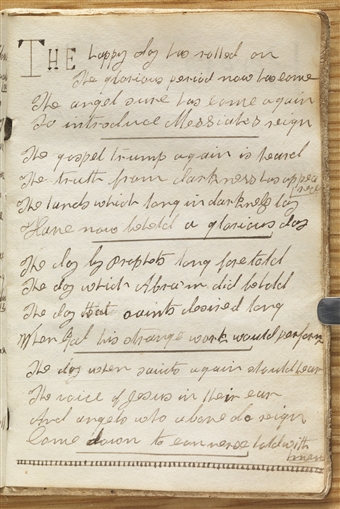 THE happy day has rolled on
The glorious period now has come
The angel sure has come again
To introduce Messiah's reign
The gospel trump again is heard
The truth from darkness has appeared
The lands which long in darkness lay
Have now beheld a glorious day
The day by Prophets long foretold
The day which Abra'm did behold
The day that saints desired long
When God his strange work would perform
The day when saints again should hear
The voice of Jesus in their ear
And angels who above do reign
Come down to converse hold with men